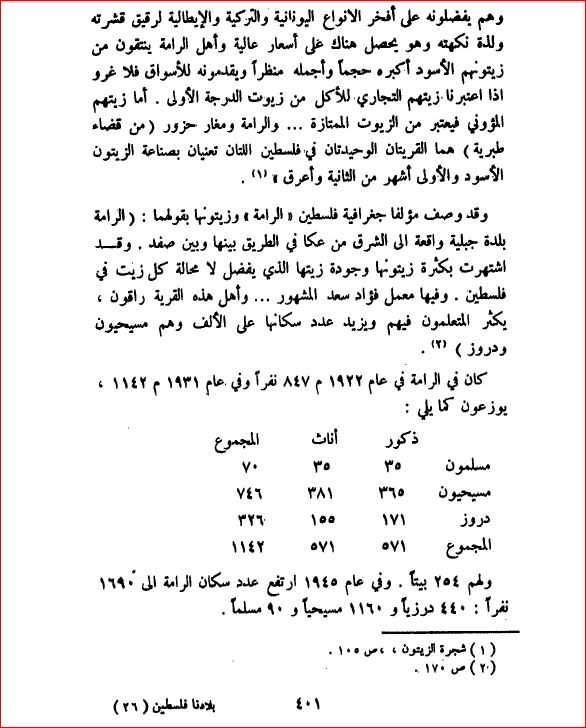 وهم يفضلونه على أفخر الانواع اليونانية والتركية والإيطالية لرقيق قشرته
ولذة نكهته وهو يحصل هناك على أسعار عالية وأهل الرامة ينتقون من
زيتونهم الأسود أكبره حجماً وأجمله منظراً ويقدمونه للأسواق فلا غرو
اذا اعتبرنا زيتهم التجاري للأكل من زيوت الدرجة الأولى . أما زيتهم
المؤوني فيعتبر من الزيوت الممتازة ... والرامة ومغار حزور ( من قضاء
طبرية ) هما القريتان الوحيدتان في فلسطين اللتان تعنيان بصناعة الزيتون
الأسود والأولى أشهر من الثانية وأعرق » (١) .
وقد وصف مؤلفا جغرافية فلسطين « الرامة » وزيتونها بقولهما : ( الرامة
بلدة جبلية واقعة الى الشرق من عكا في الطريق بينها وبين صفد . وقـــد
اشتهرت بكثرة زيتونها وجودة زيتها الذي يفضل لا محالة كل زيت في
فلسطين . وفيها معمل فؤاد سعد المشهور ... وأهل هذه القرية راقون ،
يكثر المتعلمون فيهم ويزيد عدد سكانها على الألف وهم مسيحيون
ودروز ) (٢) .
كان في الرامة في عام ١٩٢٢ م ٨٤٧ نفراً وفي عام ١٩٣١ م ١١٤٢ ،
يوزعون كما يلي :
ذكور أناث المجموع
مسلمون ٣٥ ٣٥ ٧٠
مسيحيون ٣٦٥ ٣٨١ ٧٤٦
دروز ١٧١ ١٥٥ ٣٢٦
المجموع ٥٧١ ٥٧١ ١١٤٢
ولهم ٢٥٤ بيتاً . وفي عام ١٩٤٥ ارتفع عدد سكان الرامة الى ١٦٩٠
نفراً : ٤٤٠ درزياً و ١١٦٠ مسيحياً و ٩٠ مسلماً .
( ١ ) شجرة الزيتون ، ، ص ١٠٥ .
( ٢ ) ص ١٧٠ .
٤٠١ بلادنا فلسطين ( ٢٦ )